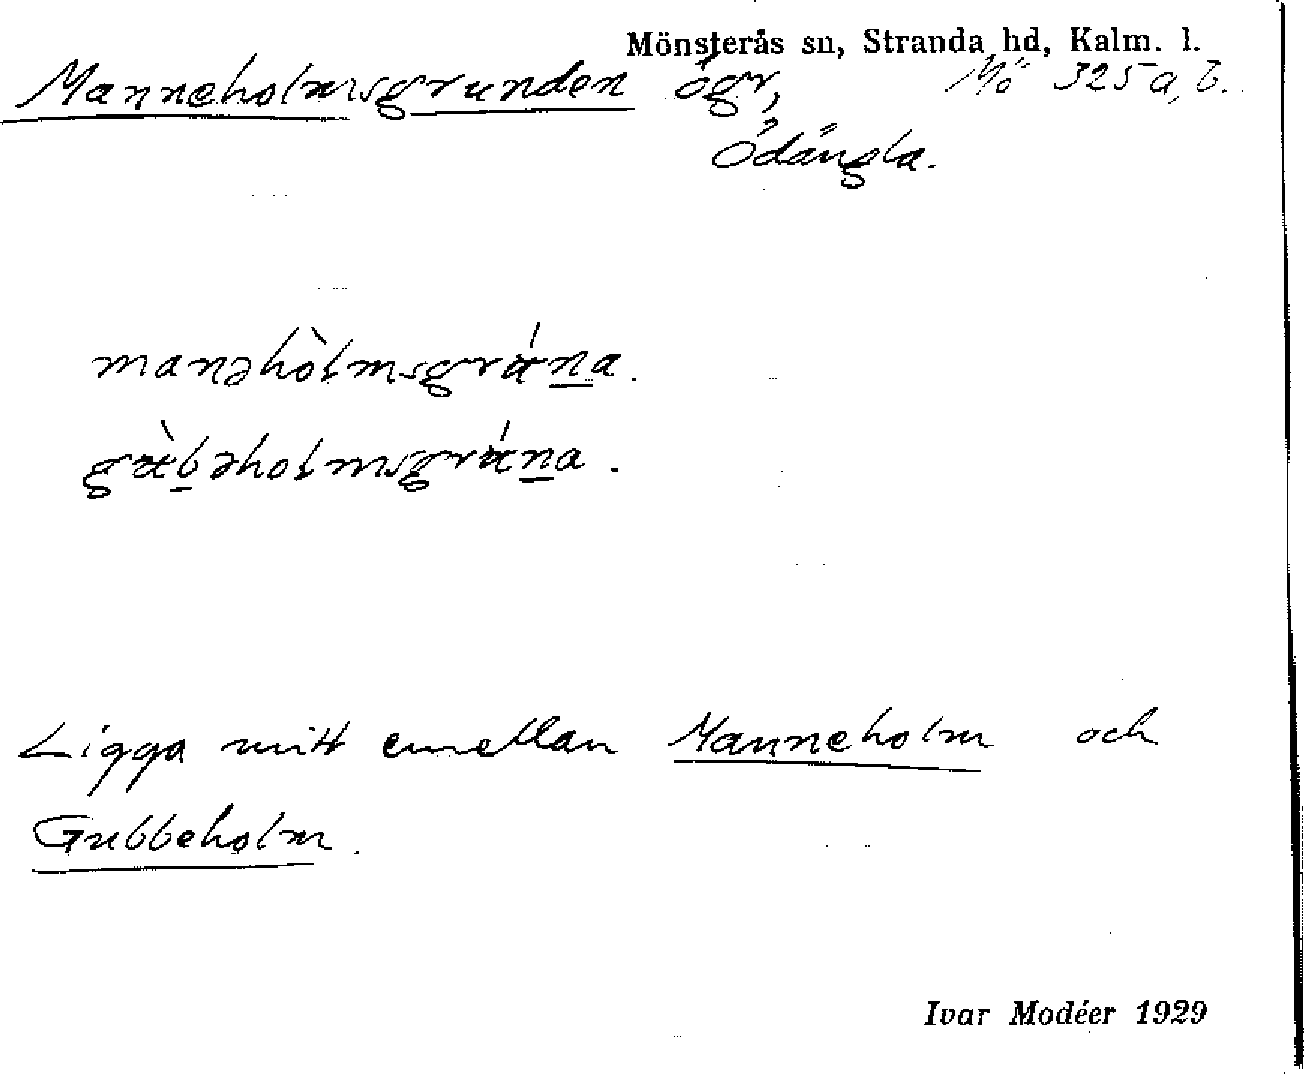 Mönsterås sn, Stranda hd, Kalm. l.
Manneholmsgrunden ögr, Mö 325 a, b.
Ödängla.
Ligga mitt emellan Manneholm och
Gubbeholm.
Ivar Modéer 1929